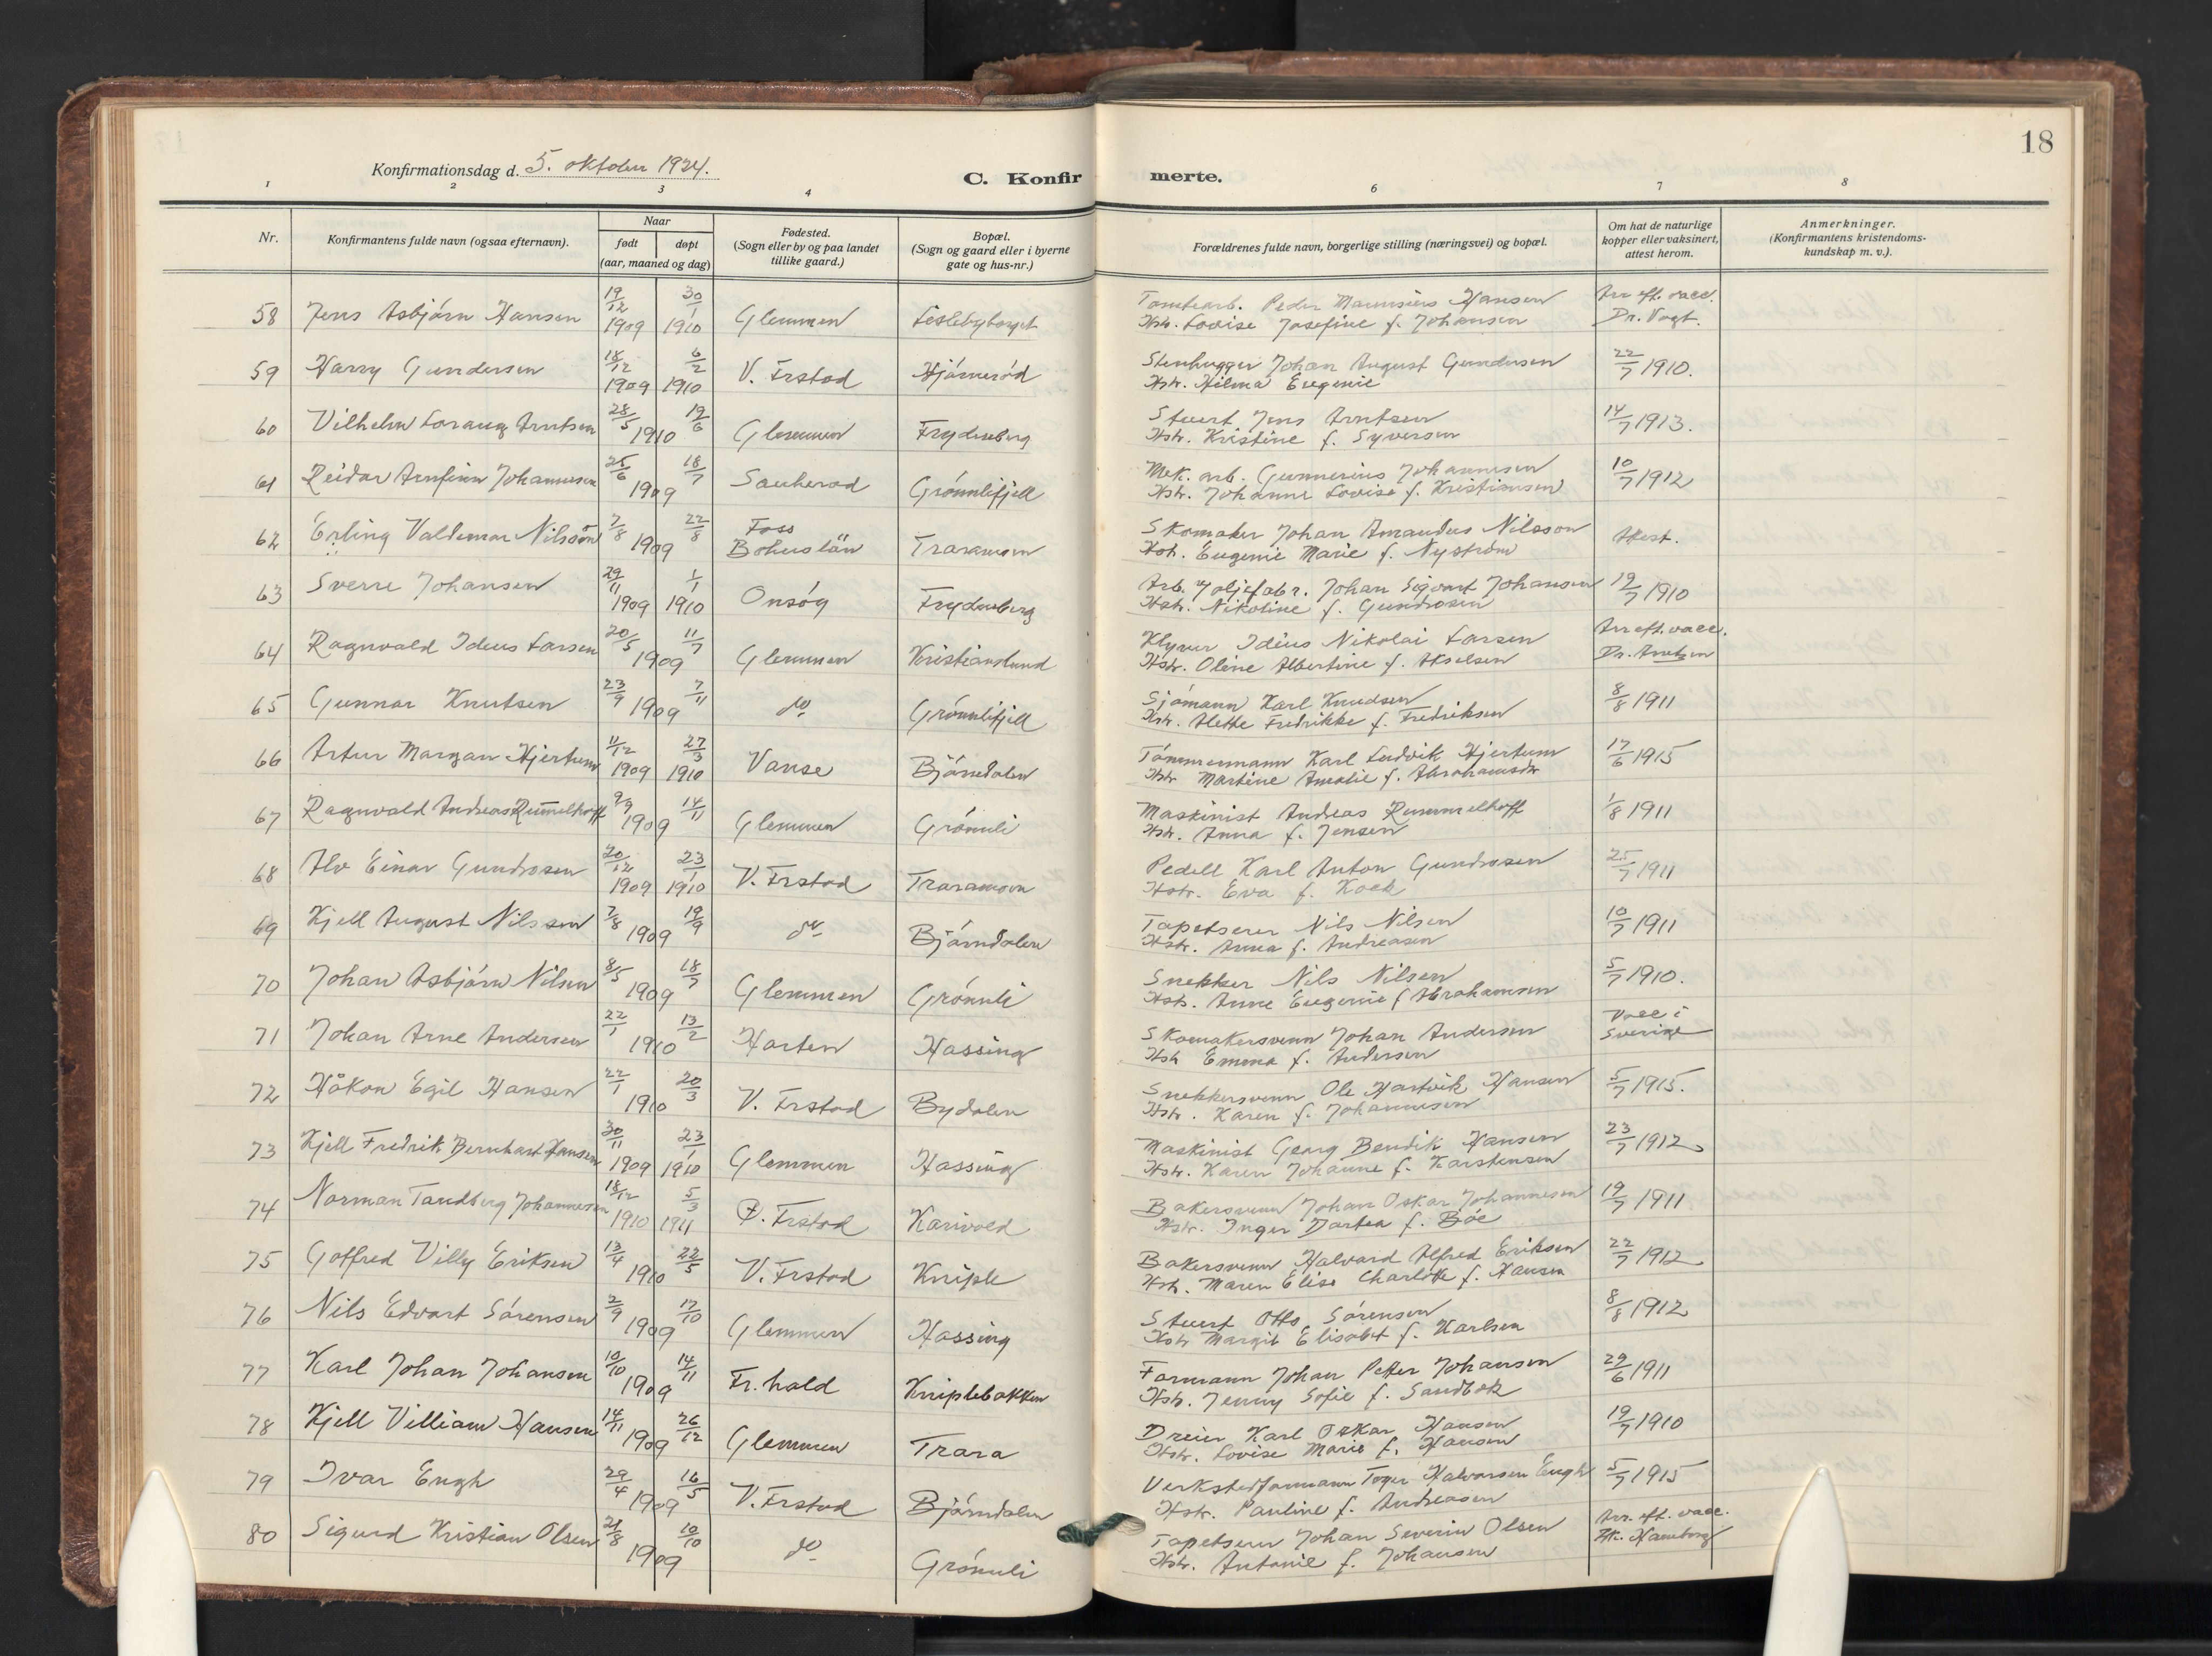 18
Konfirmationsdag d. 5. oktober 1924.
C. Konfirmerte.
1 2 3 4 6 7 8
Nr.
Konfirmantens fulde navn (ogsaa efternavn).
Naar
født døpt
(aar, maaned og dag)
Fødested.
(Sogn eller by og paa landet
tillike gaard.)
Bopæl.
(Sogn og gaard eller i byerne
gate og hus-nr.)
Forældrenes fulde navn, borgerlige stilling (næringsvei) og bopæl.
Om hat de naturlige
kopper eller vaksinert,
attest herom.
Anmerkninger.
(Konfirmantens kristendoms-
kundskap m. v.).
58 Jens Asbjørn Hansen 19/12 1909 30/1 1910 Glemmen Lislebyberget Tomtearb. Peder Hansen Arr eft. vacc.
Hstr. Lovise Josefine f. Johansen Dr. Vogt.
59 Harry Gundersen 18/12 1909 6/2 1910 V. Frstad Hjørnerød Stenhugger Johan August Gundersen 22/7 1910.
Hstr. Hilma Eugenie
60 Vilhelm Lorang Arntsen 28/5 19/6 1910 Glemmen Frydenberg Stuert Jens Arntsen 14/7 1913.
Hstr. Kristine f. Syversen
61 Reidar Arnfinn Johannesen 25/6 18/7 1909 Sauherad Grønnlifjell Mek. arb. Gunnerius Johannesen 10/7 1912
Hstr. Johanne Lovise f. Kristiansen
62 Erling Valdemar Nilsson 7/8 22/8 1909 Foss Bohuslän Traramoen Skomaker Johan Amandus Nilsson Attest.
Hstr. Eugenie Marie f. Nyström
63 Sverre Johansen 29/11 1909 1/1 1910 Onsøy Frydenberg Arb. v/ oljefabr. Johan Sigvart Johansen 19/7 1910
Hstr. Nikoline f. Gundrosen
64 Ragnvald Ideus Larsen 20/5 11/7 1909 Glemmen Kristianslund Klyver Ideus Nikolai Larsen Arr eft. vacc.
Hstr. Oline Albertine f. Akselsen Dr. Arntzen
65 Gunnar Knutsen 23/9 7/11 1909 do Grønnlifjell Sjømann Karl Knudsen 8/8 1911
Hstr. Alette Fredrikke f. Fredriksen
66 Artur Margan Hjertum 11/12 1909 27/3 1910 Vanse Bjørndalen Tømmermann Karl Ludvik Hjertum 17/6 1915
Hstr Martine Amalie f. Abrahamsdtr
67 Ragnvald Andreas Rum̄elhoff 9/9 14/11 1909 Glemmen Grønnli Maskinist Andreas Rummelhoff 1/8 1911
Hstr. Anna f. Jensen
68 Alv Einar Gundrosen 20/12 1909 23/1 1910 V. Frstad Traramoen Pedell Karl Anton Gundrosen 25/7 1911
Hstr. Eva f. Kock
69 Kjell August Nilssen 7/8 19/9 1909 do Bjørndalen Tapetserer Nils Nilsen 10/7 1911
Hstr. Anna f. Andreasen
70 Johan Asbjørn Nilsen 8/5 18/7 1909 Glemmen Grønnli Snekker Nils Nilsen 5/7 1910.
Hstr. Anne Eugenie f Abrahamsen
71 Johan Arne Andersen 22/1 13/2 1910 Horten Hassing Skomakersvenn Johan Andersen Vacc i
Hstr Emma f. Andersen Sverige
72 Håkon Egil Hansen 22/1 20/3 1910 V. Frstad Bydalen Snekkersvenn Ole Hartvik Hansen 5/7 1915.
Hstr. Karen f. Johannesen
73 Kjell Fredrik Bernhart Hansen 30/11 1909 23/1 1910 Glemmen Hassing Maskinist Georg Bendik Hansen 23/7 1912
Hstr. Karen Johanne f. Karstensen
74 Norman Tandberg Johannesen 18/12 1910 5/3 1911 Frstad Karivold Bakersvenn Johan Oskar Johannesen 19/7 1911
Hstr. Inger Dortea f. Bøe
75 Gotfred Villy Eriksen 13/4 22/5 1910 V. Frstad Kniple Bakersvenn Halvard Alfred Eriksen 22/7 1912
Hstr. Maren Elise Charlotte f. Hansen
76 Nils Edvart Sørensen 2/9 17/10 1909 Glemmen Hassing Stuert Otto Sørensen 8/8 1912
Hstr Margit Elisabet f. Karlsen
77 Karl Johan Johansen 10/10 14/11 1909 Fr.hald Kniplebakken Formann Johan Petter Johansen 29/6 1911
Hstr. Jenny Sofie f. Sandbæk
78 Kjell Villiam Hansen 14/11 26/12 1909 Glemmen Trara Dreier Karl Oskar Hansen 19/7 1910
Hstr. Lovise Marie f. Hansen
79 Ivar Engh 29/4 16/5 1909 V. Frstad Bjørndalen Verkstedformann Toger Halvorsen Engh 5/7 1915
Hstr. Pauline f. Andreasen
80 Sigurd Kristian Olsen 21/8 10/10 1909 do Grønnli Tapetserer Johan Severin Olsen Arr. eft. vacc.
Hstr. Antonie f. Johansen